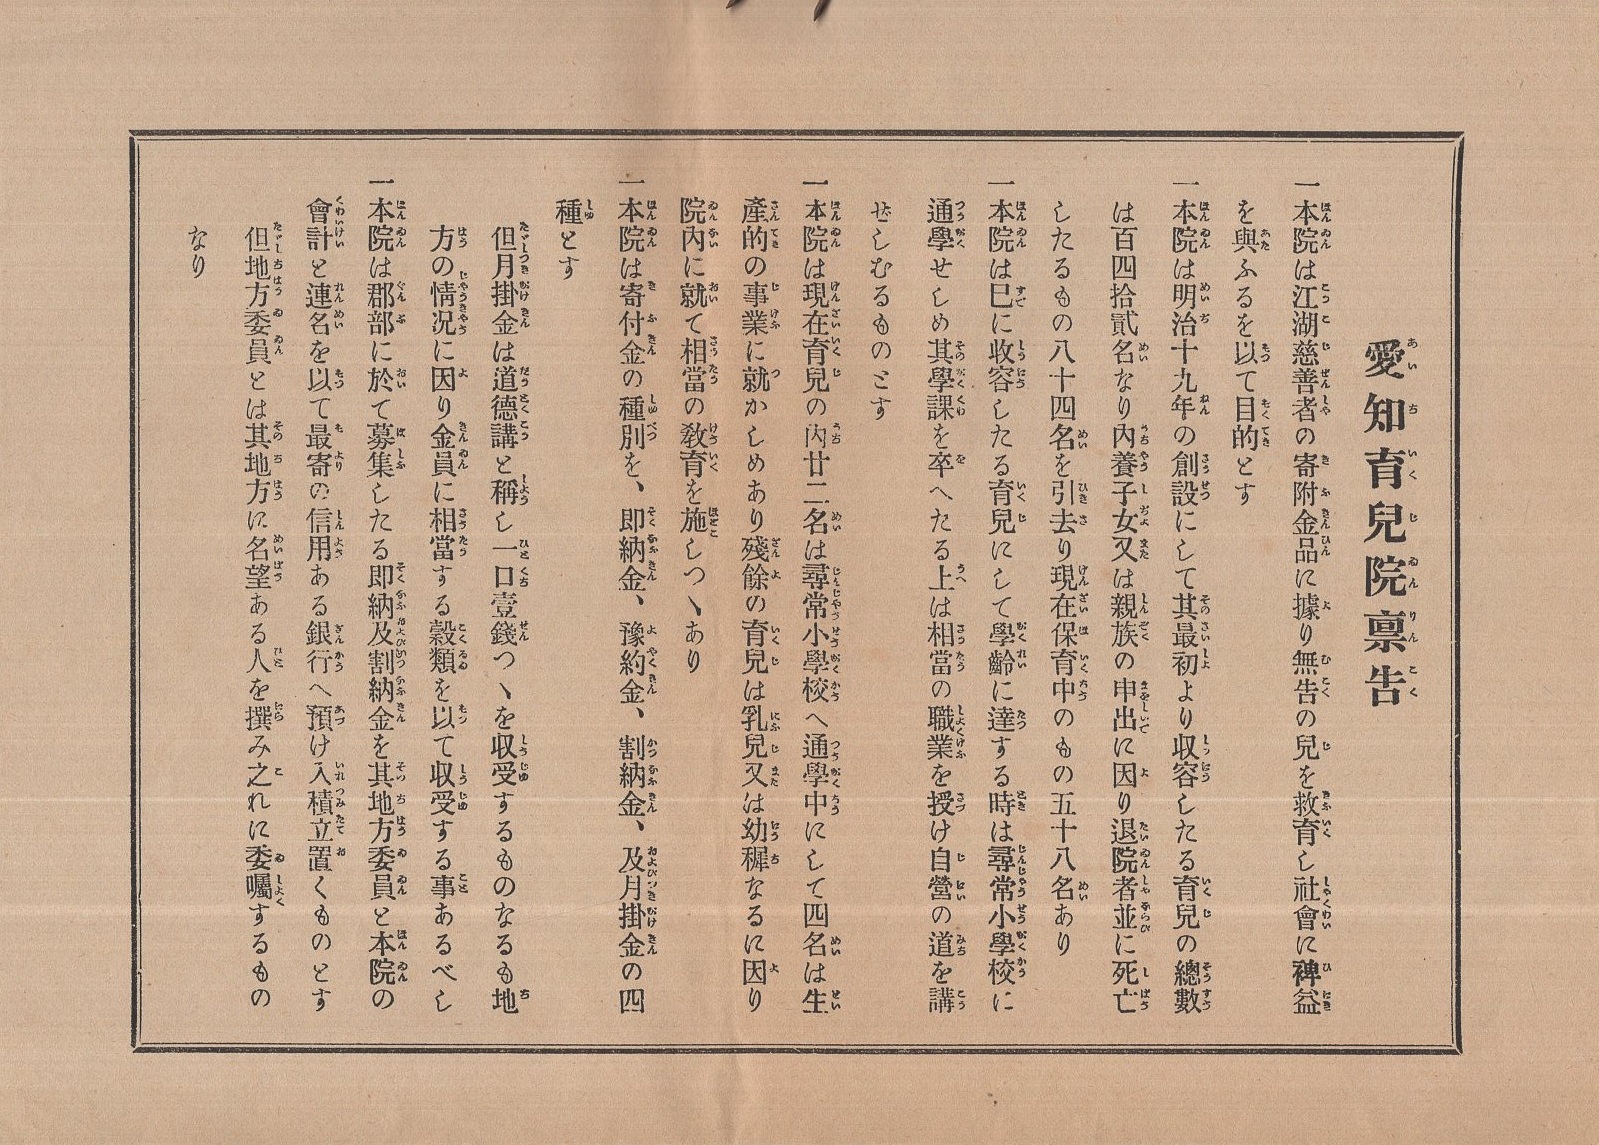 愛知育兒院禀告
一本院は江湖慈善者の寄附金品に據り無告の兒を救育し社會に裨益
を與ふるを以て目的とす
一本院は明治十九年の創設にして其最初より収容したる育兒の總數
は百四拾貳名なり內養子女又は親族の申出に因り退院者並に死亡
したるもの八十四名を引去り現在保育中のもの五十八名あり
一本院は巳に收容したる育兒にして學齡に達する時は尋常小學校に
通學せしめ其學課を卒へたる上は相當の職業を授け自營の道を講
ぜしむるものとす
一本院は現在育兒の內廿二名は尋常小學校へ通學中にして四名は生
產的の事業に就かしめあり殘餘の育兒は乳兒又は幼穉なるに因り
院內に就て相當の敎育を施しつゝあり
一本院は寄付金の種別を、卽納金、豫約金、割納金、及月掛金の四
種とす
但月掛金は道德講と稱し一口壹錢つゝを収受するものなるも地
方の情况に因り金員に相當する穀類を以て収受する事あるべし
一本院は郡部に於て募集したる卽納及割納金を其地方委員と本院の
會計と連名を以て最寄の信用ある銀行へ預け入積立置くものとす
但地方委員とは其地方に名望ある人を撰み之れに委囑するもの
なり